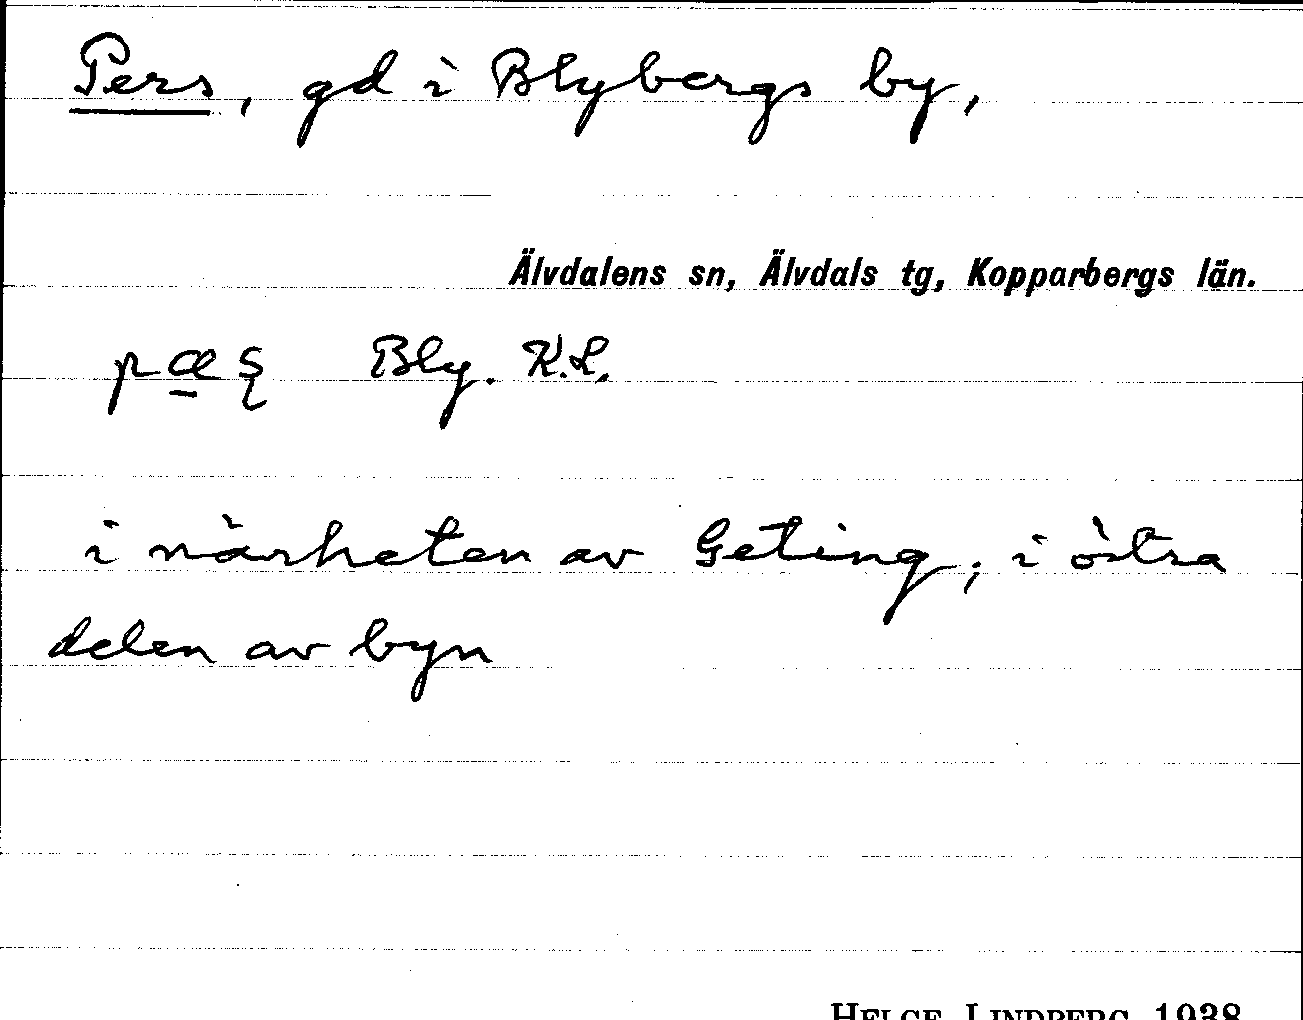 Pers, gd i Blybergs by,
Älvdalens sn, Älvdals tg, Kopparbergs län.
Bly. K.L.
i närheten av Geting; i östra
delen av byn
HELGE LINDBERG 1938